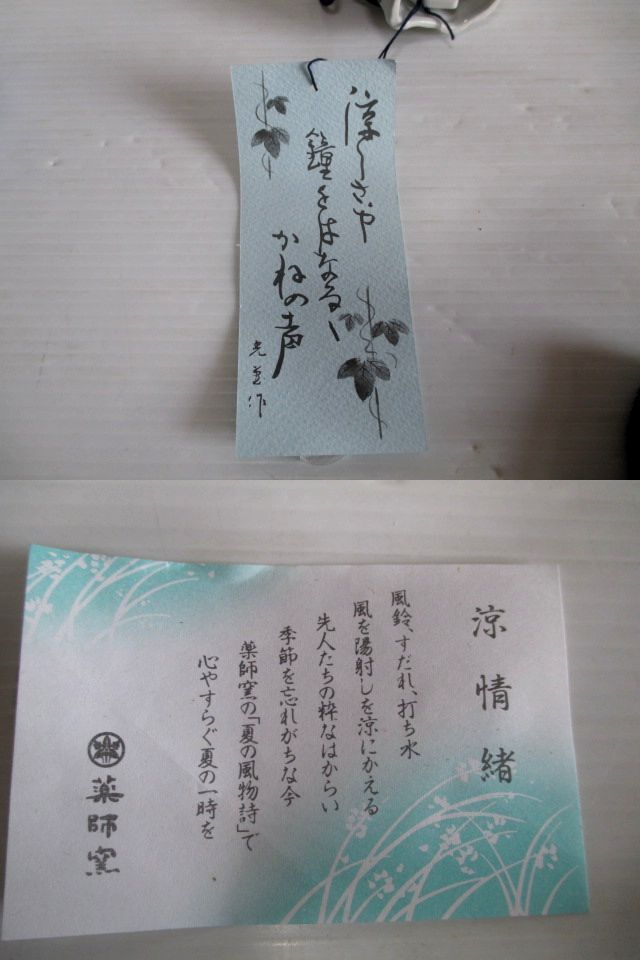 涼しさや
鐘をはなるゝ
かねの声
作
涼情緒
風鈴、すだれ、打ち水
風を陽射しを涼にかえる
先人たちの粋なはからい
季節を忘れがちな今
薬師窯の「夏の風物詩」で
心やすらぐ夏の一時を
薬師窯